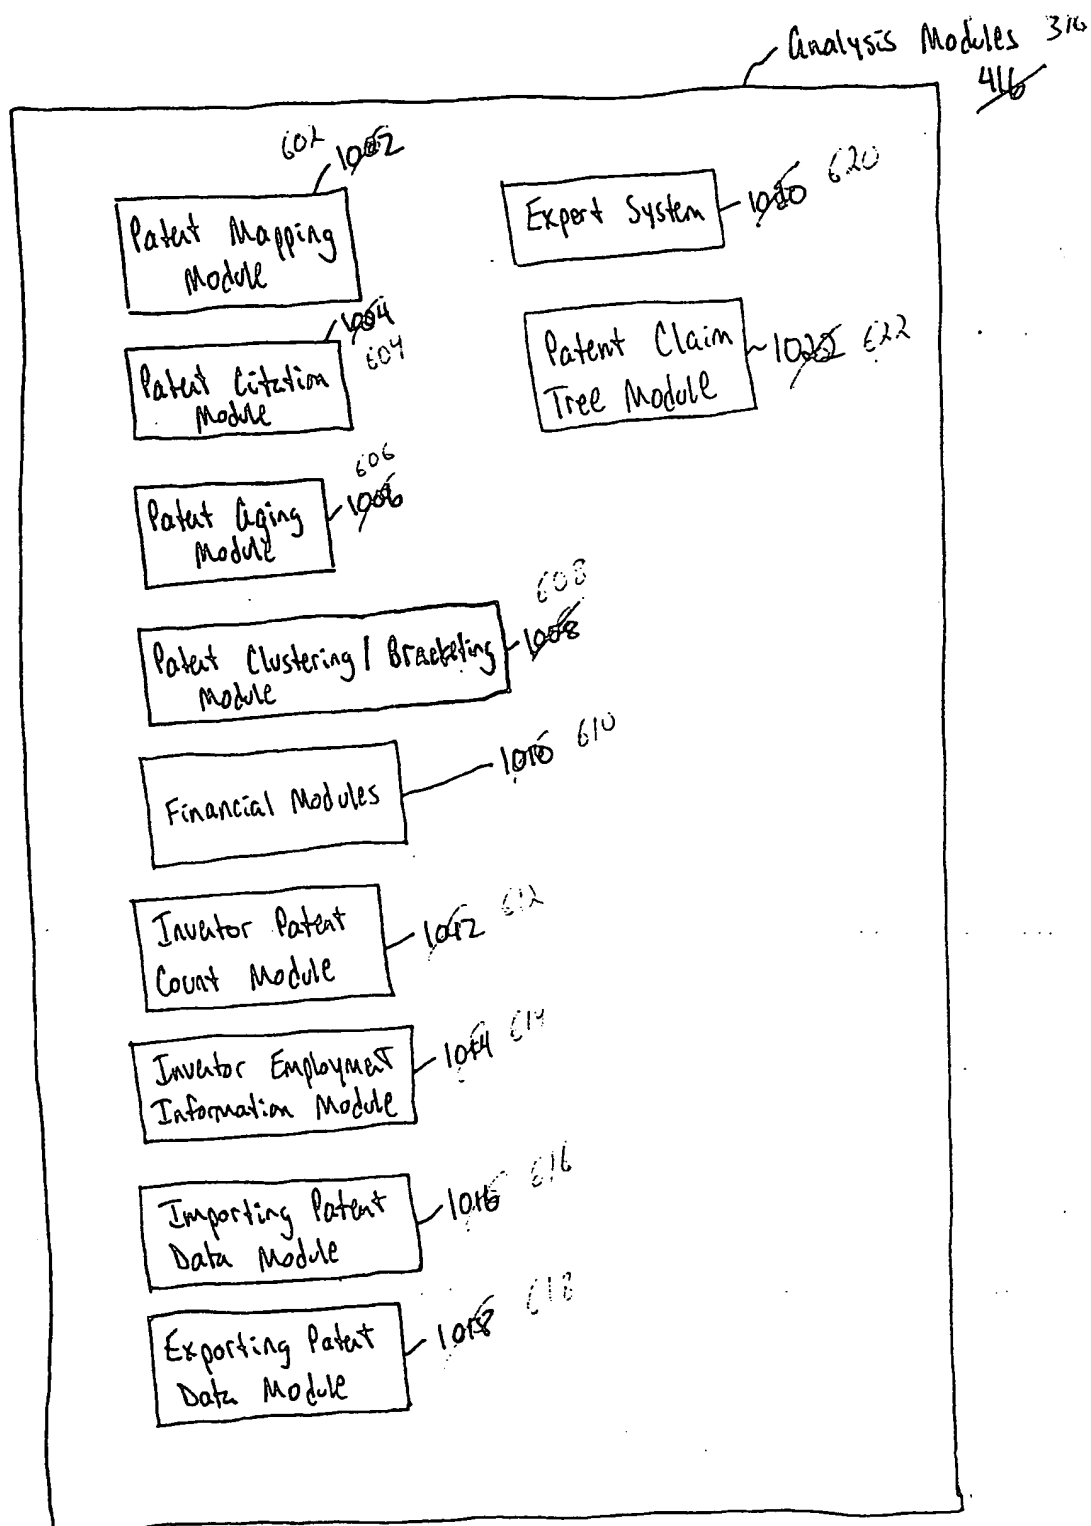 Analysis Modules 316
416
602 1002
Patent Mapping
Module
1004
604
Patent Citation
Module
606
1006
Patent Aging
Module
608
1008
Patent Clustering / Bracketing
Module
1010 610
Financial Modules
1012 612
Inventor Patent
Count Module
1014 614
Inventor Employment
Information Module
1016 616
Importing Patent
Data Module
1018 618
Exporting Patent
Data Module
Expert System
1020 620
Patent Claim
Tree Module
1022 622